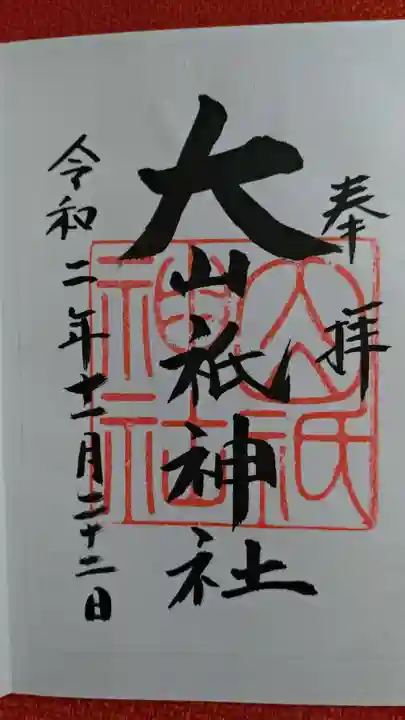 奉拝
大山祇神社
令和二年十一月二十二日
山祇
神社